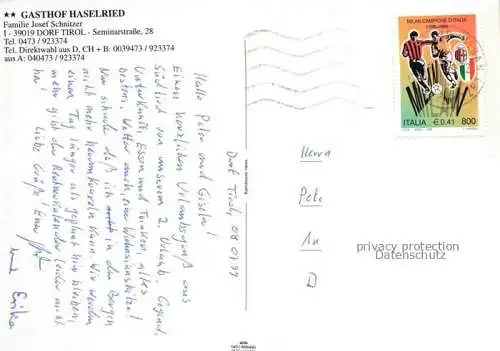 ★★ GASTHOF HASELRIED
Familie Josef Schnitzer
I - 39019 DORF TIROL - Seminarstraße, 28
Tel. 0473 / 923374
Tel. Direktwahl aus D, CH + B: 0039473 / 923374
aus A: 040473 / 923374
MILAN CAMPIONE D'ITALIA
1998-1999
ITALIA € 0,41 800
Dorf Tirol, 08.07.99
Hallo Peter und Gisela!
Einen herzlichen Urlaubsgruß aus
Südtirol von unserem 2. Urlaub. Gegend,
Unterkunft, Essen und Trinken, alles
bestens. Wetter auch, eine Wahnsinnshitze!
Nur schade, daß ich in den Bergen
nicht mehr herumkraxeln kann. Wir werden
einen Tag länger als geplant hier bleiben,
mehr gibt der Rentnerkalender leider nicht
her! Liebe Grüße! Euer
und Erika
Herrn
Pete
In
D
privacy protection
Datenschutz